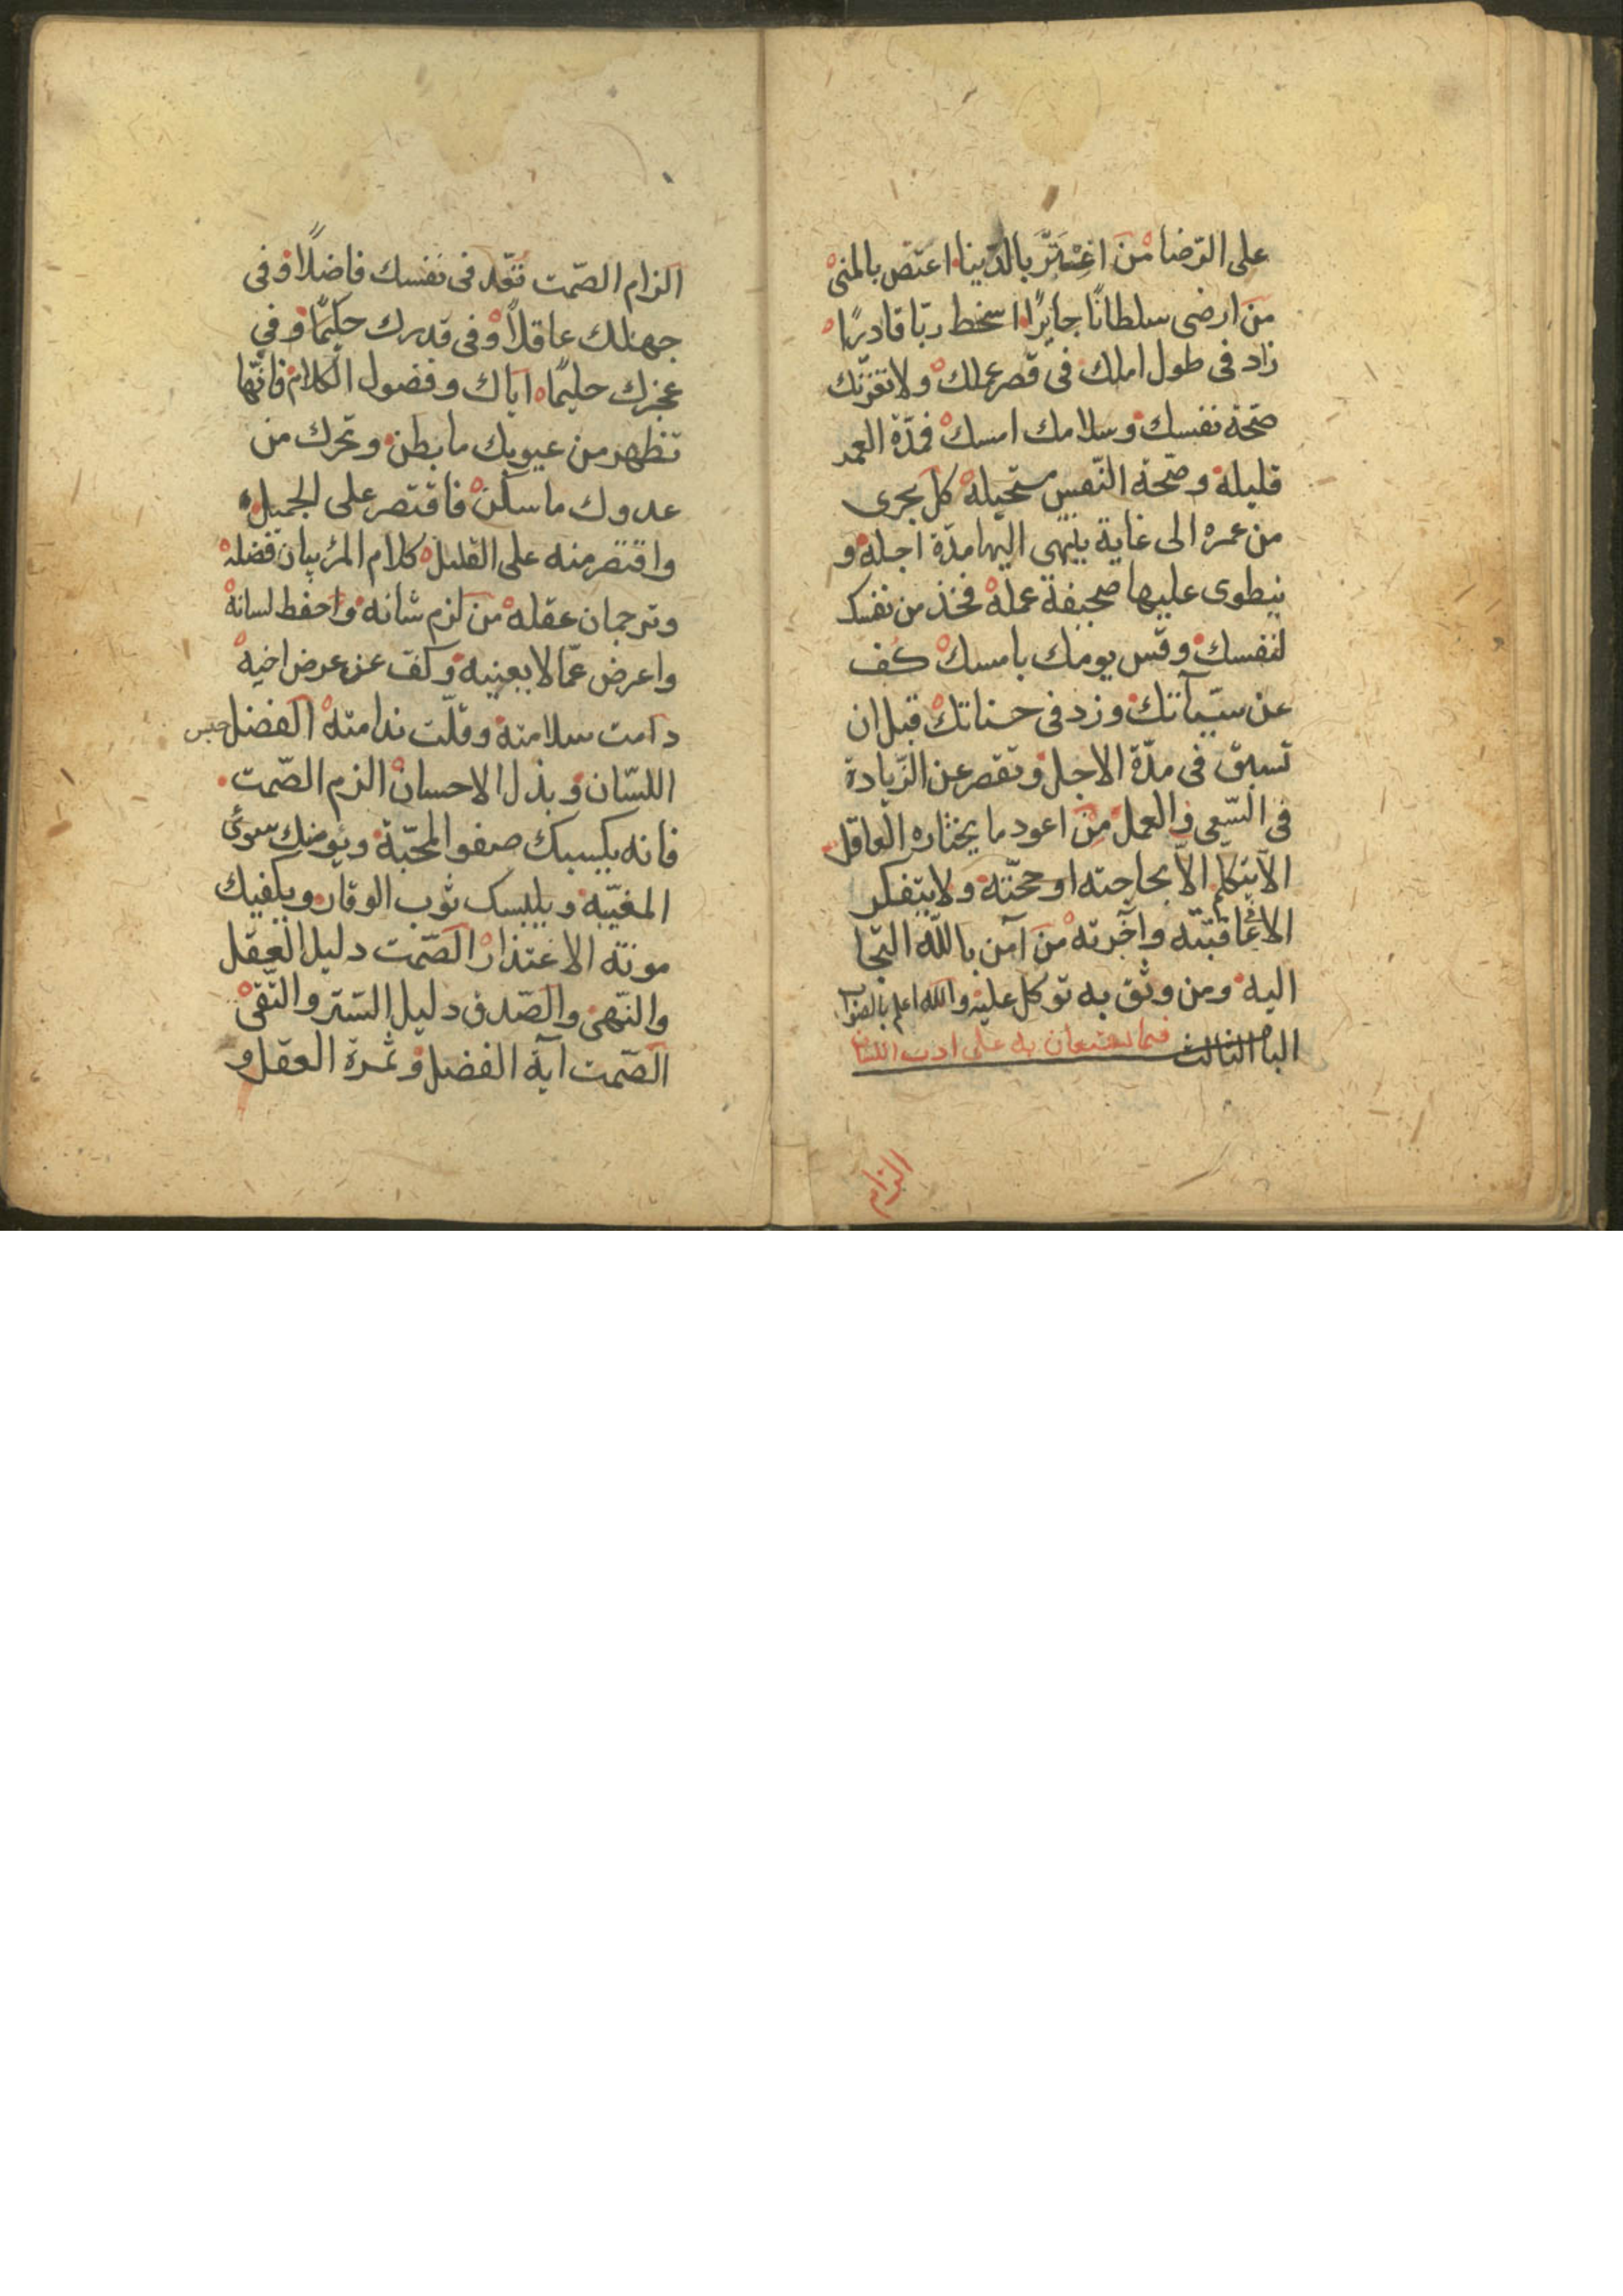 على الرّضا من اغْتَرَّ بالدّنيا اغتصّ بالمنى
من ارضى سلطانًا جايرًا اسخط ربّا قادرًا
زاد فى طول املك فى قصر عملك ولا تغرّنّك
صحّة نفسك وسلامك امسك فمدّة العمر
قليلة وصحّة النّفس مستحيلة كل يجرى
من عمره الى غاية ينتهى اليها مدّة اجله و
ينطوى عليها صحيفة عمله فخذ من نفسك
لنفسك وقس يومك بامسك كُف
عن سيّآتك وزد فى حسناتك قبل ان
تسبق فى مدّة الاجل وتقصر عن الزّيادة
فى السّعى والعمل من اعود ما يختاره العاقل
الّا يتكلم الّا بحاجته او حجّته ولا يتفكر
الا فى عاقبته وآخرته من آمن باللّه التجا
اليه ومن وثق به توكل عليه واللّه اعلم بالصّواب
الباب الثالث فيما يستعان به على ادب اللسان
الزام
الزام الصّمت تُعّد فى نفسك فاضلًا وفى
جهلك عاقلًا وفى قدرك حكيمًا وفي
عجزك حليمًا اياك وفضول الكلام فانّها
تظهر من عيوبك ما بطن وتحرك من
عدوك ما سكن فاقتصر على الجميل
واقتصر منه على القليل كلام المرء بيان فضله
وترجمان عقله من لزم شانه واحفظ لسانه
واعرض عمّا لا يعنيه وكفّ عن عرض اخيه
دامت سلامته وقلّت ندامته الفضل حبس
اللسّان وبذل الاحسان الزم الصّمت
فانه يكسبك صفو المحبّة ويؤمنك سوئ
المغبّة ويلبسك ثوب الوقار ويكفيك
مونة الاعتذار الصّمت دليل العقل
والنّهى والصّدق دليل السّتر والتّقى
الصّمت آية الفضل وثمرة العقل و